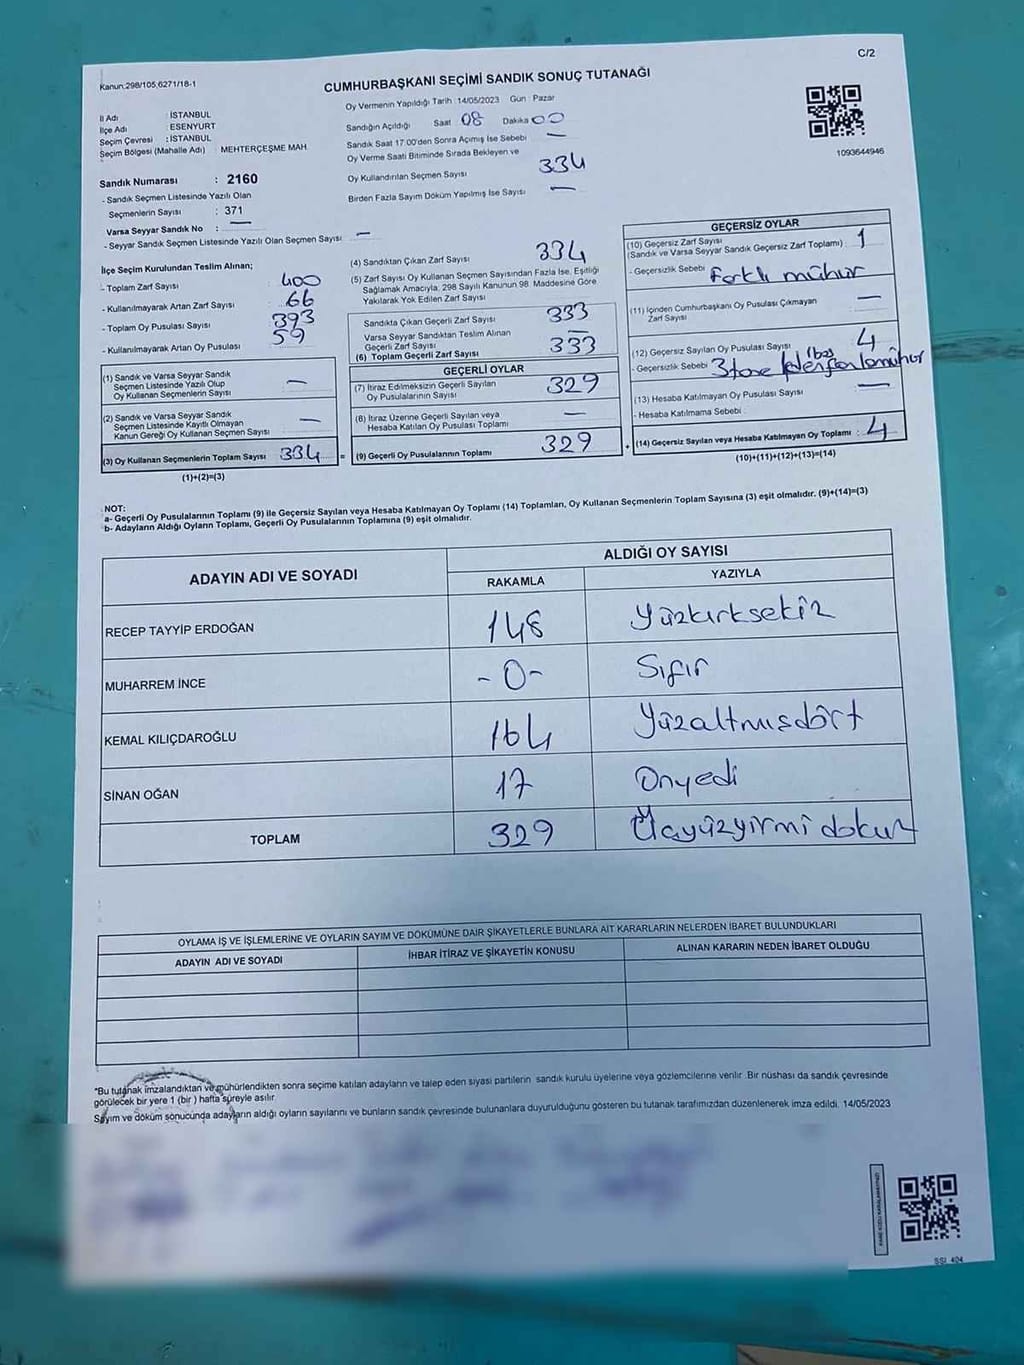 C/2
Kanun:298/105,6271/18-1
CUMHURBAŞKANI SEÇİMİ SANDIK SONUÇ TUTANAĞI
Oy Vermenin Yapıldığı Tarih :14/05/2023 Gün : Pazar
İl Adı : İSTANBUL
İlçe Adı : ESENYURT
Seçim Çevresi : İSTANBUL
Seçim Bölgesi (Mahalle Adı) : MEHTERÇEŞME MAH.
Sandığın Açıldığı Saat 08 Dakika 00
Sandık Saat 17.00'den Sonra Açımış İse Sebebi —
Oy Verme Saati Bitiminde Sırada Bekleyen ve
Oy Kullandırılan Seçmen Sayısı 334
Birden Fazla Sayım Döküm Yapılmış İse Sayısı —
1093644946
Sandık Numarası : 2160
- Sandık Seçmen Listesinde Yazılı Olan
Seçmenlerin Sayısı : 371
Varsa Seyyar Sandık No : —
- Seyyar Sandık Seçmen Listesinde Yazılı Olan Seçmen Sayısı: —
İlçe Seçim Kurulundan Teslim Alınan;
- Toplam Zarf Sayısı : 400
- Kullanılmayarak Artan Zarf Sayısı : 66
- Toplam Oy Pusulası Sayısı : 393
- Kullanılmayarak Artan Oy Pusulası : 59
(1) Sandık ve Varsa Seyyar Sandık
Seçmen Listesinde Yazılı Olup
Oy Kullanan Seçmenlerin Sayısı : —
(2) Sandık ve Varsa Seyyar Sandık
Seçmen Listesinde Kayıtlı Olmayan
Kanun Gereği Oy Kullanan Seçmen Sayısı : —
(3) Oy Kullanan Seçmenlerin Toplam Sayısı : 334 =
(1)+(2)=(3)
(4) Sandıktan Çıkan Zarf Sayısı : 334
(5) Zarf Sayısı Oy Kullanan Seçmen Sayısından Fazla İse, Eşitliği
Sağlamak Amacıyla, 298 Sayılı Kanunun 98. Maddesine Göre
Yakılarak Yok Edilen Zarf Sayısı :
Sandıkta Çıkan Geçerli Zarf Sayısı : 333
Varsa Seyyar Sandıktan Teslim Alınan
Geçerli Zarf Sayısı : —
(6) Toplam Geçerli Zarf Sayısı : 333
GEÇERLİ OYLAR
(7) İtiraz Edilmeksizin Geçerli Sayılan
Oy Pusulalarının Sayısı : 329
(8) İtiraz Üzerine Geçerli Sayılan veya
Hesaba Katılan Oy Pusulası Toplamı : —
(9) Geçerli Oy Pusulalarının Toplamı : 329 +
GEÇERSİZ OYLAR
(10) Geçersiz Zarf Sayısı
(Sandık ve Varsa Seyyar Sandık Geçersiz Zarf Toplamı) : 1
- Geçersizlik Sebebi : Farklı mühür
(11) İçinden Cumhurbaşkanı Oy Pusulası Çıkmayan
Zarf Sayısı : —
(12) Geçersiz Sayılan Oy Pusulası Sayısı : 4
- Geçersizlik Sebebi : 3 tane 1 boş
(13) Hesaba Katılmayan Oy Pusulası Sayısı : —
- Hesaba Katılmama Sebebi :
(14) Geçersiz Sayılan veya Hesaba Katılmayan Oy Toplamı : 4
(10)+(11)+(12)+(13)=(14)
NOT:
a- Geçerli Oy Pusulalarının Toplamı (9) ile Geçersiz Sayılan veya Hesaba Katılmayan Oy Toplamı (14) Toplamları, Oy Kullanan Seçmenlerin Toplam Sayısına (3) eşit olmalıdır. (9)+(14)=(3)
b- Adayların Aldığı Oyların Toplamı, Geçerli Oy Pusulalarının Toplamına (9) eşit olmalıdır.
ADAYIN ADI VE SOYADI
ALDIĞI OY SAYISI
RAKAMLA YAZIYLA
RECEP TAYYİP ERDOĞAN 148 Yüzkırksekiz
MUHARREM İNCE -0- Sıfır
KEMAL KILIÇDAROĞLU 164 Yüzaltmışdört
SİNAN OĞAN 17 Onyedi
TOPLAM 329 Üçyüzyirmi dokuz
OYLAMA İŞ VE İŞLEMLERİNE VE OYLARIN SAYIM VE DÖKÜMÜNE DAİR ŞİKAYETLERLE BUNLARA AİT KARARLARIN NELERDEN İBARET BULUNDUKLARI
ADAYIN ADI VE SOYADI İHBAR İTİRAZ VE ŞİKAYETİN KONUSU ALINAN KARARIN NEDEN İBARET OLDUĞU
*Bu tutanak imzalandıktan ve mühürlendikten sonra seçime katılan adayların ve talep eden siyasi partilerin sandık kurulu üyelerine veya gözlemcilerine verilir. Bir nüshası da sandık çevresinde
görülecek bir yere 1 (bir ) hafta süreyle asılır.
Sayım ve döküm sonucunda adayların aldığı oyların sayılarını ve bunların sandık çevresinde bulunanlara duyurulduğunu gösteren bu tutanak tarafımızdan düzenlenerek imza edildi. 14/05/2023